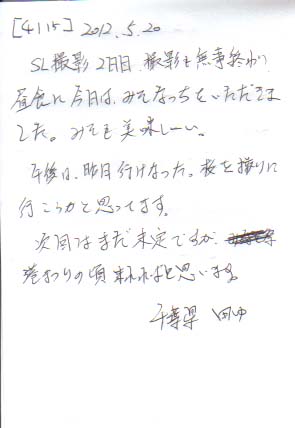 [4115] 2012.5.20
SL撮影2日目 撮影も無事終わり
昼食に今日は、みそなっちをいただきま
した。みそも美味しーい。
午後は、昨日行けなった。桜を撮りに
行こうかと思ってます。
次回はまだ未定ですが、
巻わりの頃 来れればと思います。
千葉県 田中